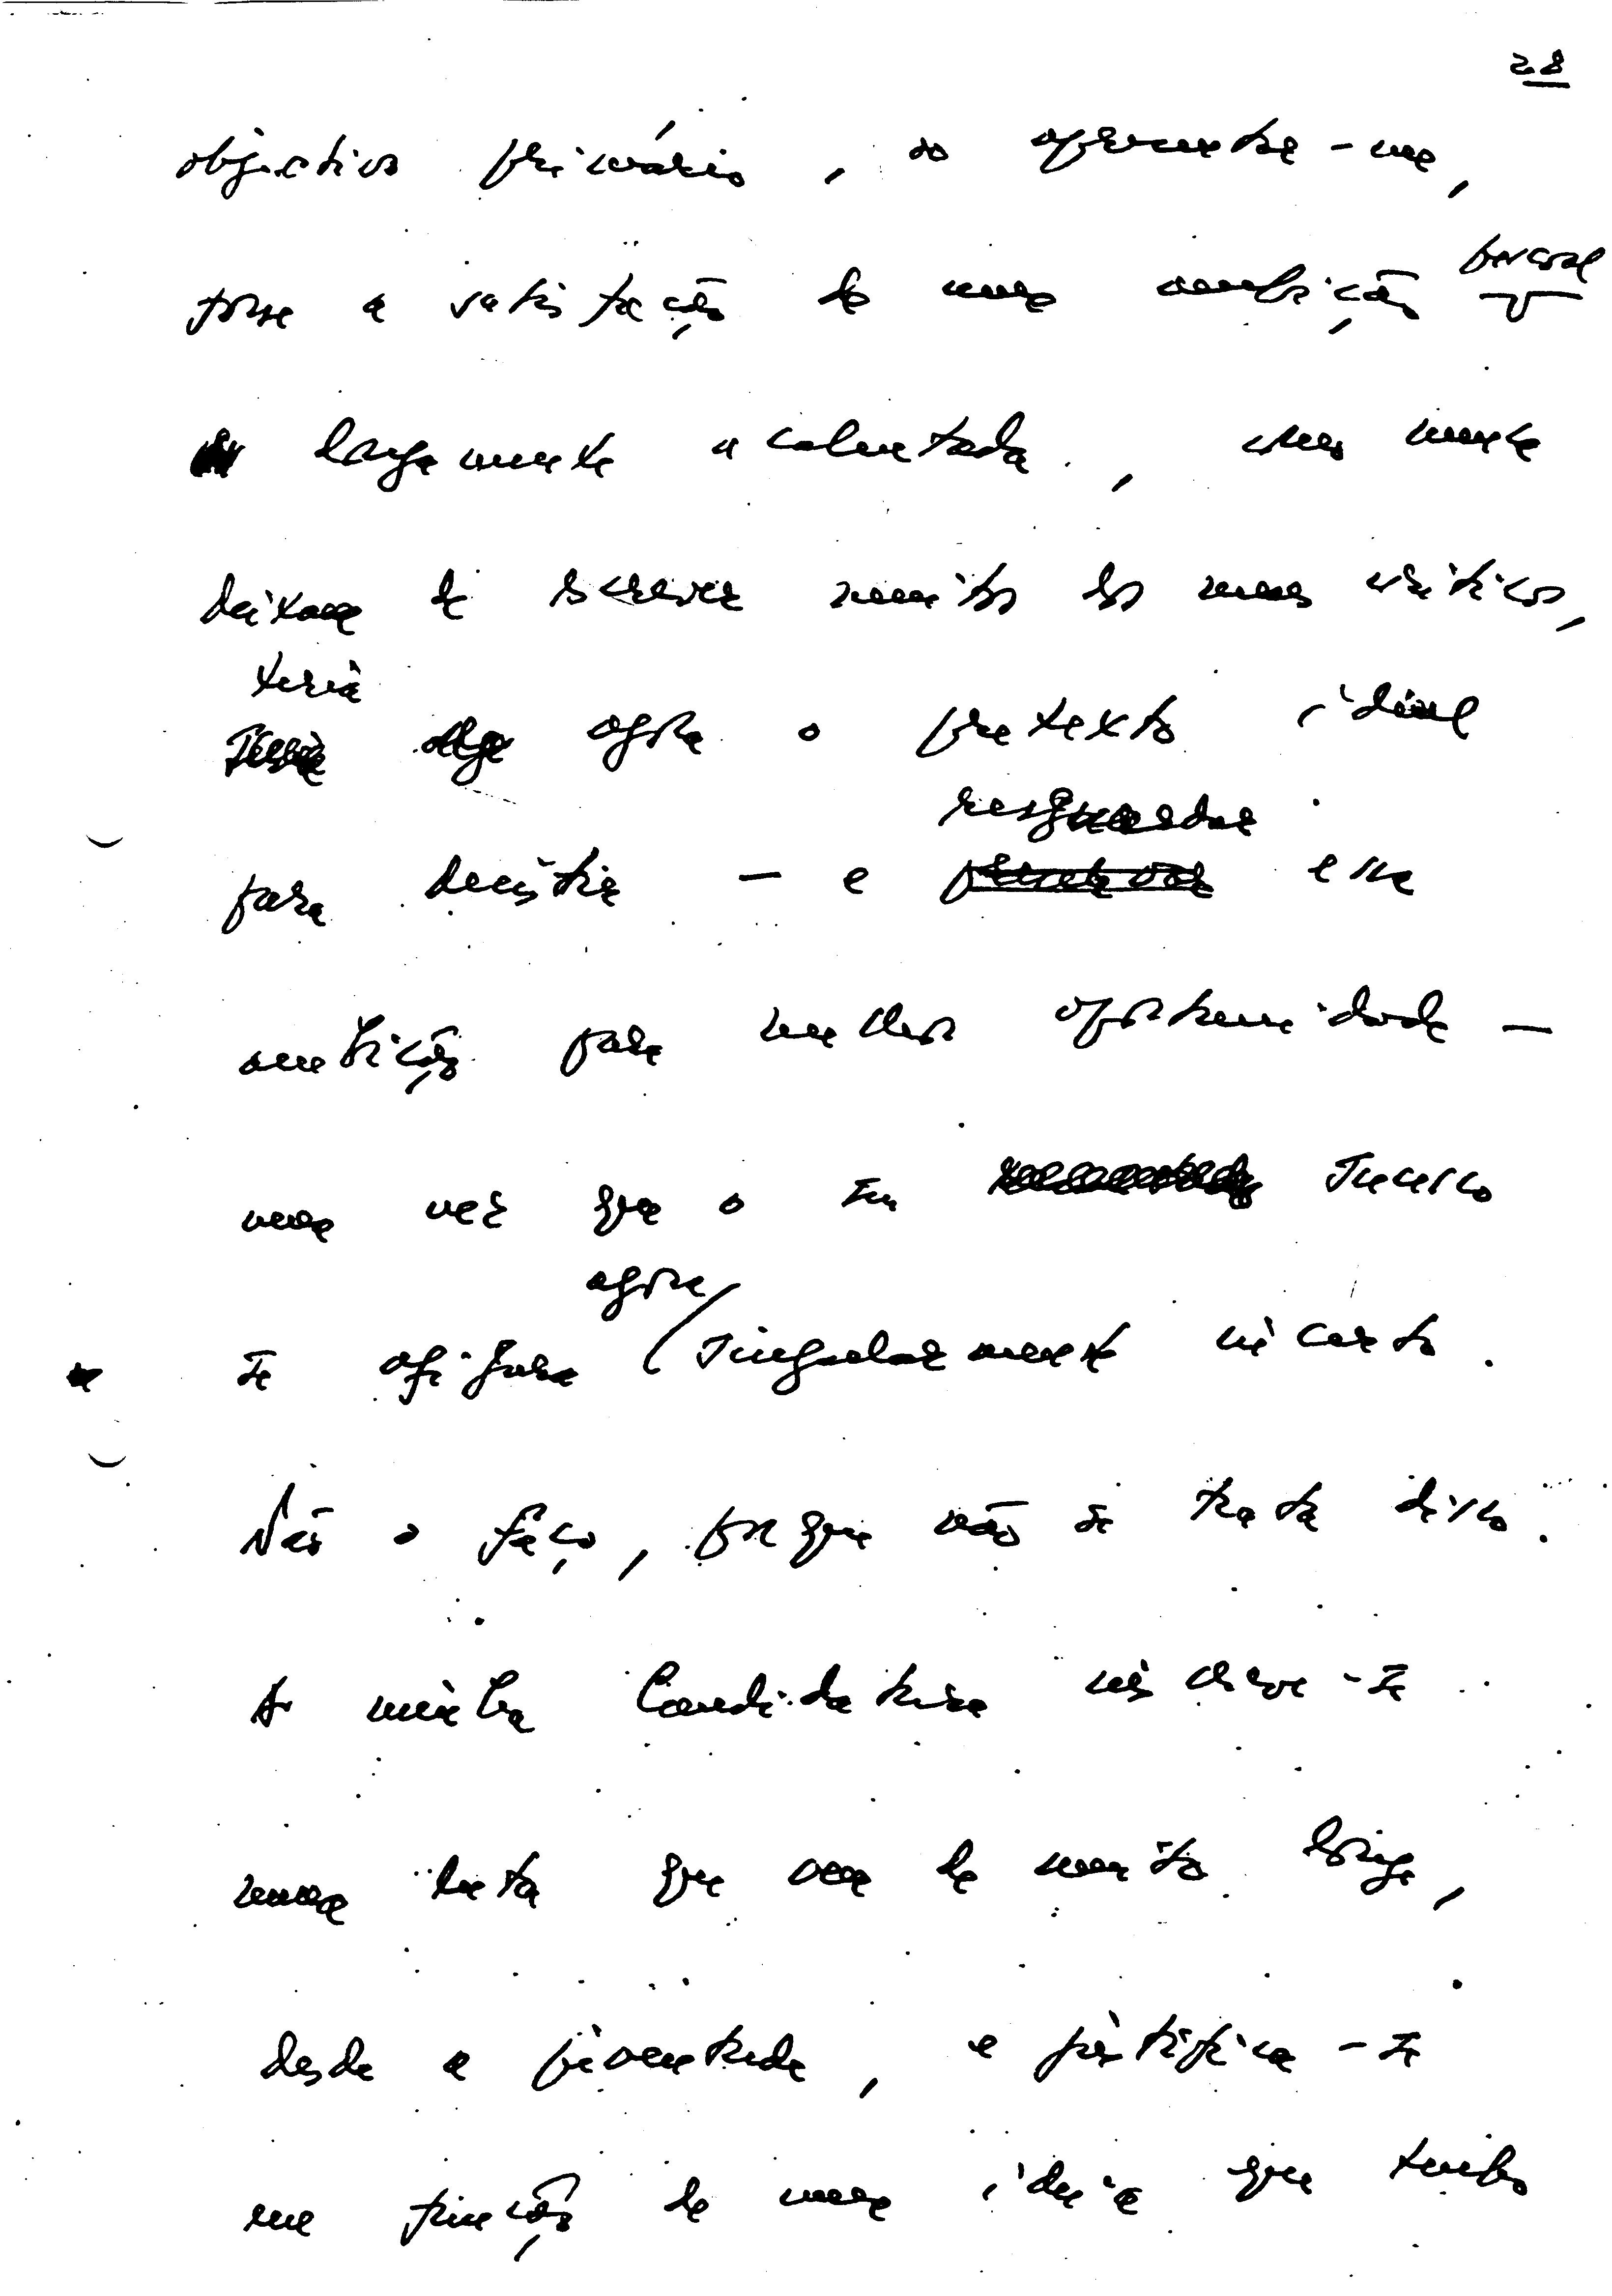 28
objectivo primário, ao apresentar-me,
fosse a satisfação de uma ambição pessoal
largamente acalentada, como nunca
deixam de escrever muitos dos meus críticos,
teria
agora o pretexto ideal
resguardar
para desistir — e essa
ambição para melhor oportunidade —
uma vez que o seu sucesso
agora
se afigura singularmente incerto.
Não o faço, porque não se trata disso.
A minha Candidatura inscreve-se
numa luta que vem de muito longe,
desde a juventude, e justifica-se
em função de uma ideia que tenho